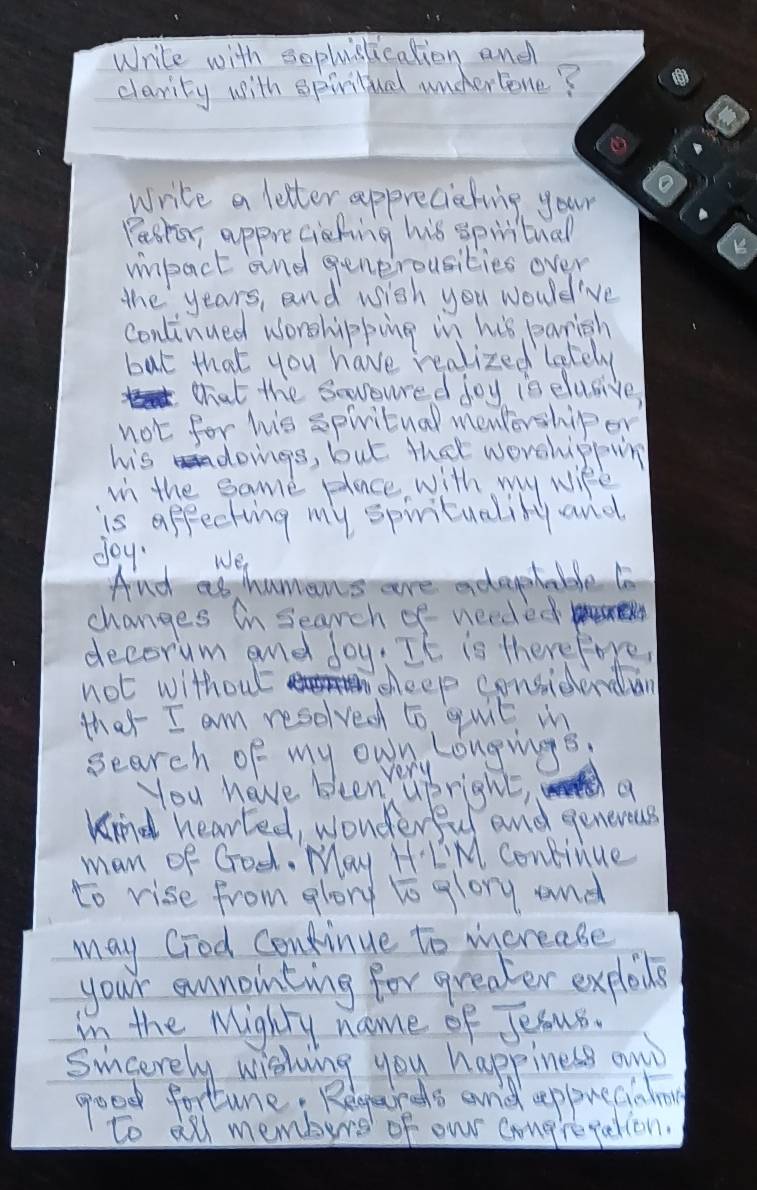 Write with sophistication and
clarity with spiritual undertone?
Write a letter appreciating your
Pastor, appreciating his spiritual
impact and generousities over
the years, and wish you would've
continued worshipping in his parish
but that you have realized lately
that the savoured joy is elusive,
not for his spiritual mentorship or
his doings, but that worshipping
in the same place with my wife
is affecting my spirituality and
joy.
And as We humans are adaptable to
changes in search of needed
decorum and joy. It is therefore,
not without deep consideration
that I am resolved to quit in
search of my own Longings.
You have been very upright, a
Kind hearted, wonderful and generous
man of God. May H.L.M continue
to rise from glory to glory and
may God continue to increase
your annointing for greater exploits
in the Mighty name of Jesus.
Sincerely wishing you happiness and
good fortune. Regards and appreciation
to all members of our congregation.